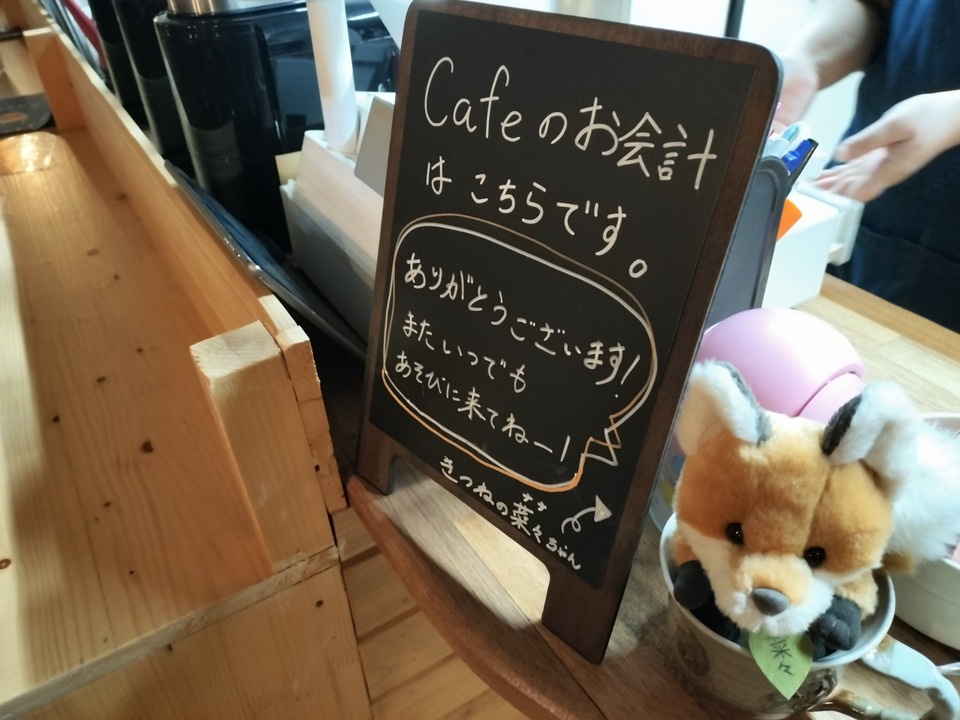 Cafeのお会計
は こちらです。
ありがとうございます!
またいつでも
あそびに来てねー!
ナナ
きつねの菜々ちゃん
菜々